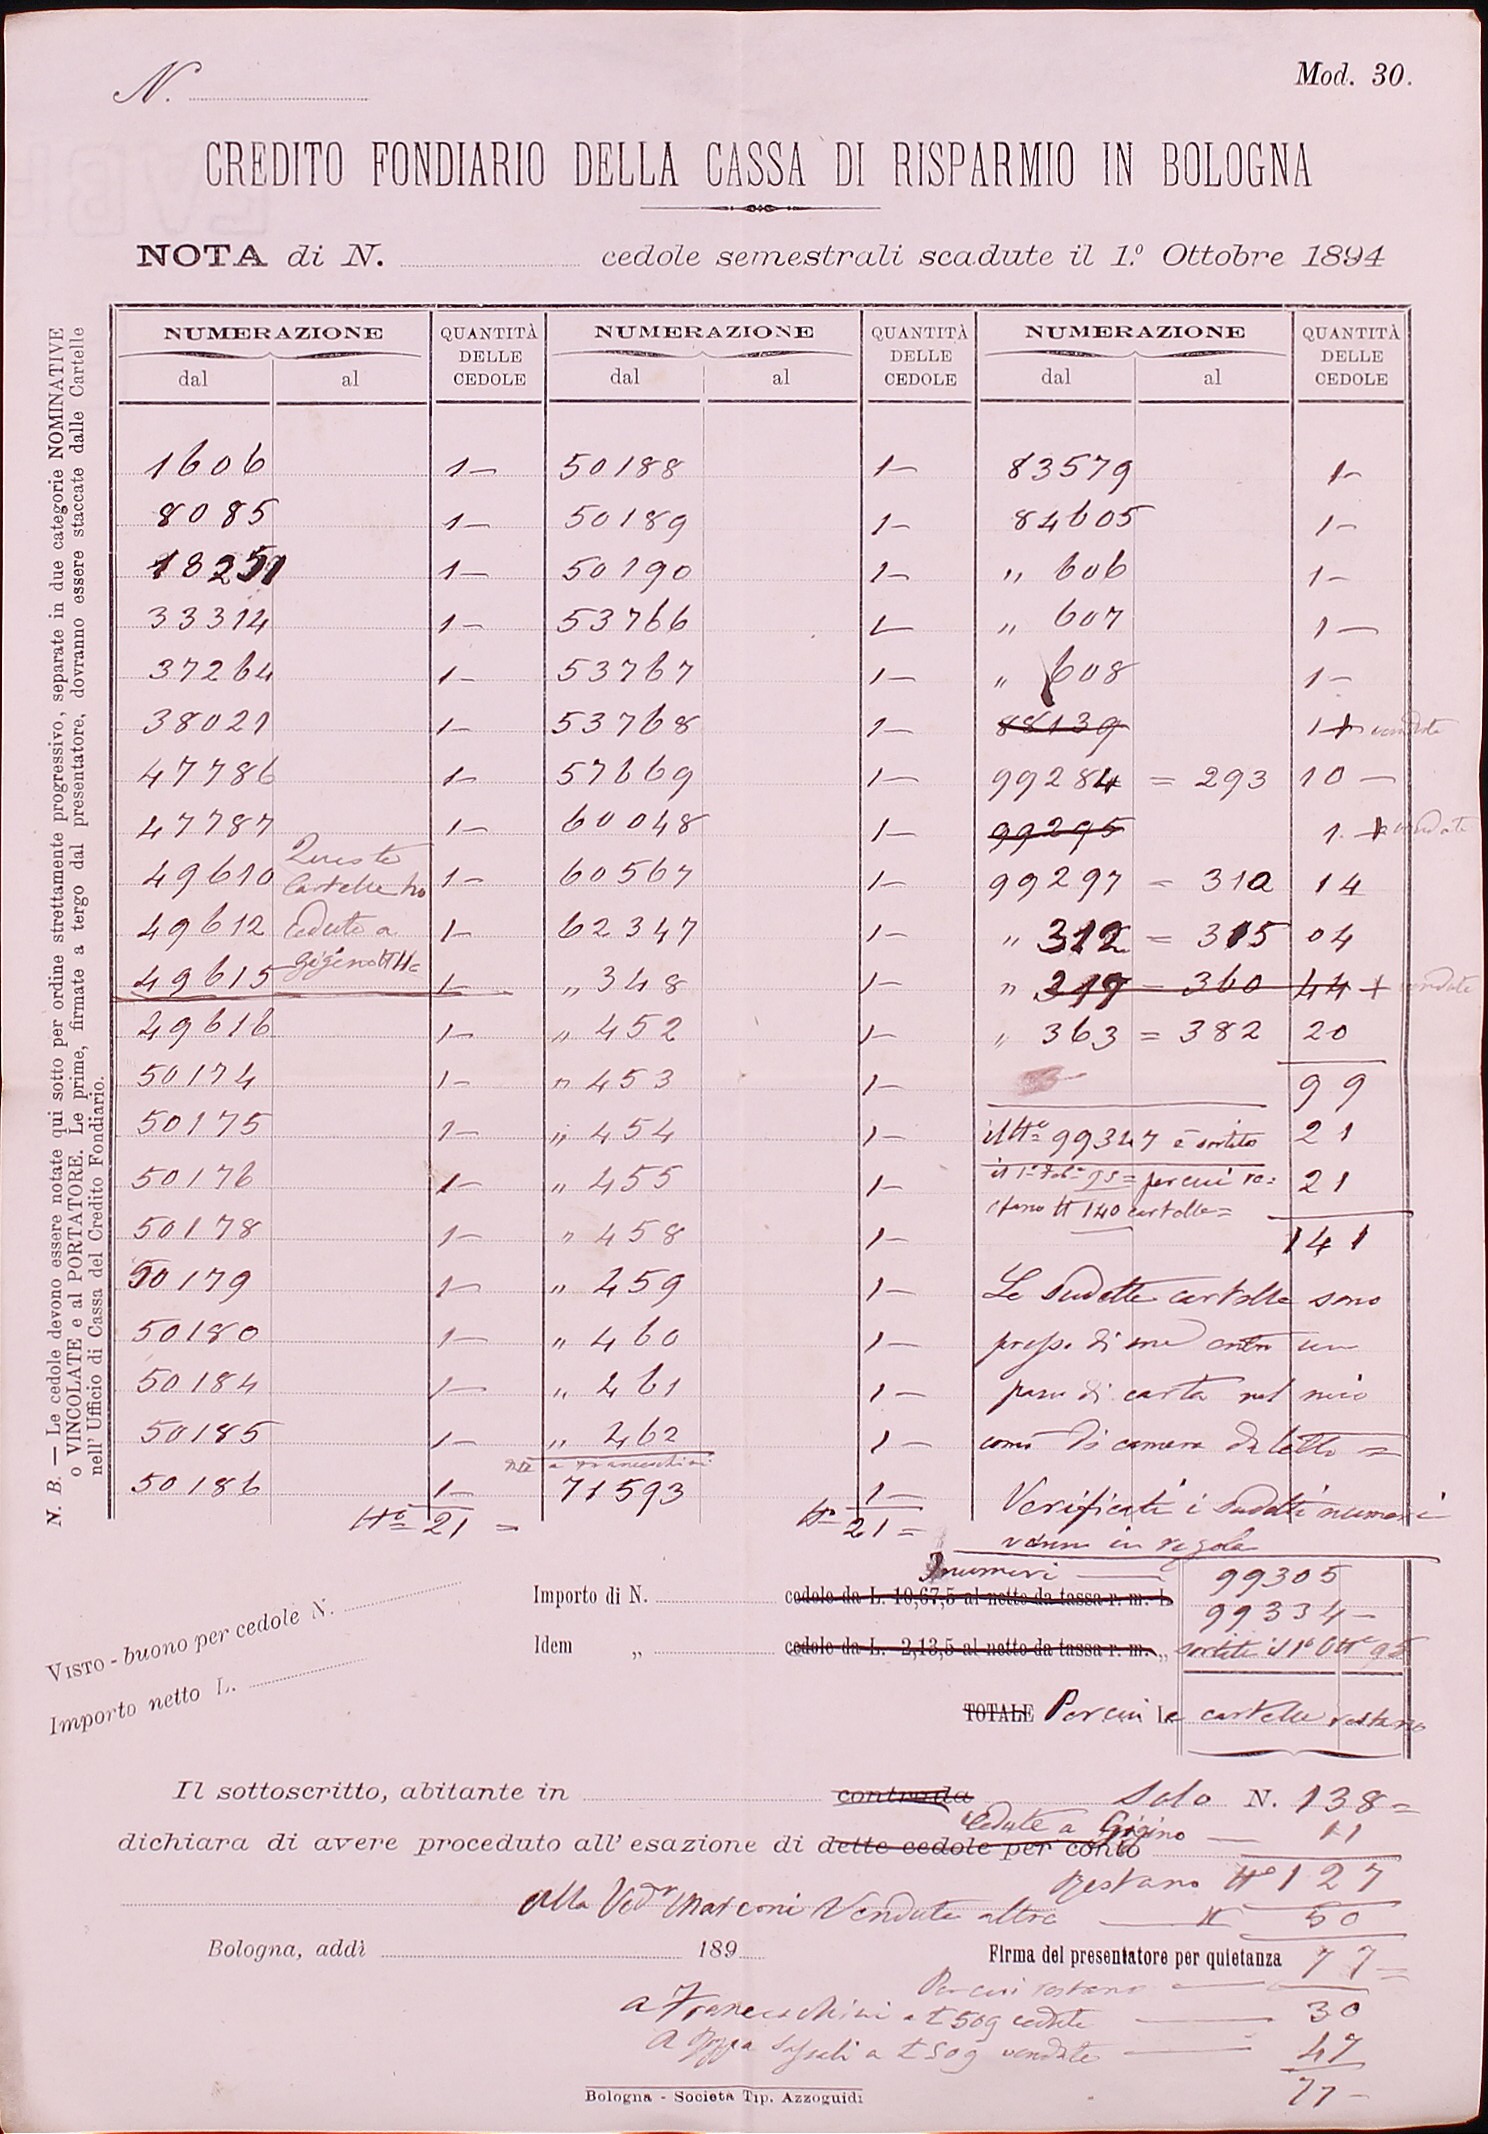 N.
Mod. 30.
CREDITO FONDIARIO DELLA CASSA DI RISPARMIO IN BOLOGNA
NOTA di N. cedole semestrali scadute il 1.º Ottobre 1894
NUMERAZIONE QUANTITÀ DELLE CEDOLE NUMERAZIONE QUANTITÀ DELLE CEDOLE NUMERAZIONE QUANTITÀ DELLE CEDOLE
dal al dal al dal al
1606 1— 50188 1— 83579 1—
8085 1— 50189 1— 84605 1—
18251 1— 50190 1— „ 606 1—
33314 1— 53766 1— „ 607 1—
37264 1— 53767 1— „ 608 1—
38021 1— 53768 1— 88139 1 + vendute
47786 1— 57669 1— 99284 = 293 10 —
47787 1— 60048 1— 99295 1. + vendute
49610 Queste Cartelle ho 1— 60567 1— 99297 = 310 14
49612 Cedute a 1— 62347 1— „ 312 = 315 04
49615 1— „ 348 1— „ 317 = 360 44 + vendute
49616 1— „ 452 1— „ 363 = 382 20
50174 1— „ 453 1— 99
50175 1— „ 454 1— il Nº 99347 è sortito 21
50176 1— „ 455 1— il 1º Feb. 95 = per cui re= 21
stano N 140 cartelle =
50178 1— „ 458 1— 141
50179 1— „ 459 1— Le sudette cartelle sono
50180 1— „ 460 1— presso di me entro un
50184 1— „ 461 1— di carta nel mio
50185 1— „ 462 1— comò di camera da letto =
a Franceschini
50186 1— 71593 1— Verificati i sudetti numeri
Nº 21 = Nº 21 = vanno in regola
N. B. — Le cedole devono essere notate qui sotto per ordine strettamente progressivo, separate in due categorie NOMINATIVE
o VINCOLATE e al PORTATORE. Le prime, firmate a tergo dal presentatore, dovranno essere staccate dalle Cartelle
nell' Ufficio di Cassa del Credito Fondiario.
numeri — 99305
Importo di N. cedole da L. 10,67,5 al netto da tassa r. m. L. 99334 —
Idem „ cedole da L. 2,13,5 al netto da tassa r. m. „ sortite il 1º Ottº 95
VISTO - buono per cedole N.
Importo netto L.
TOTALE Per cui le cartelle restano
Il sottoscritto, abitante in contrada solo N. 138 =
Cedute a Gigino — 11
dichiara di avere proceduto all' esazione di dette cedole per conto
Restano Nº 127
alla Vedª Marconi Vendute altre — N 50
Bologna, addì 189 Firma del presentatore per quietanza 77 =
Per cui restano —
a Franceschini a £ 509 cedute — 30
a £ 509 vendute — 47
77 —
Bologna - Società Tip. Azzoguidi